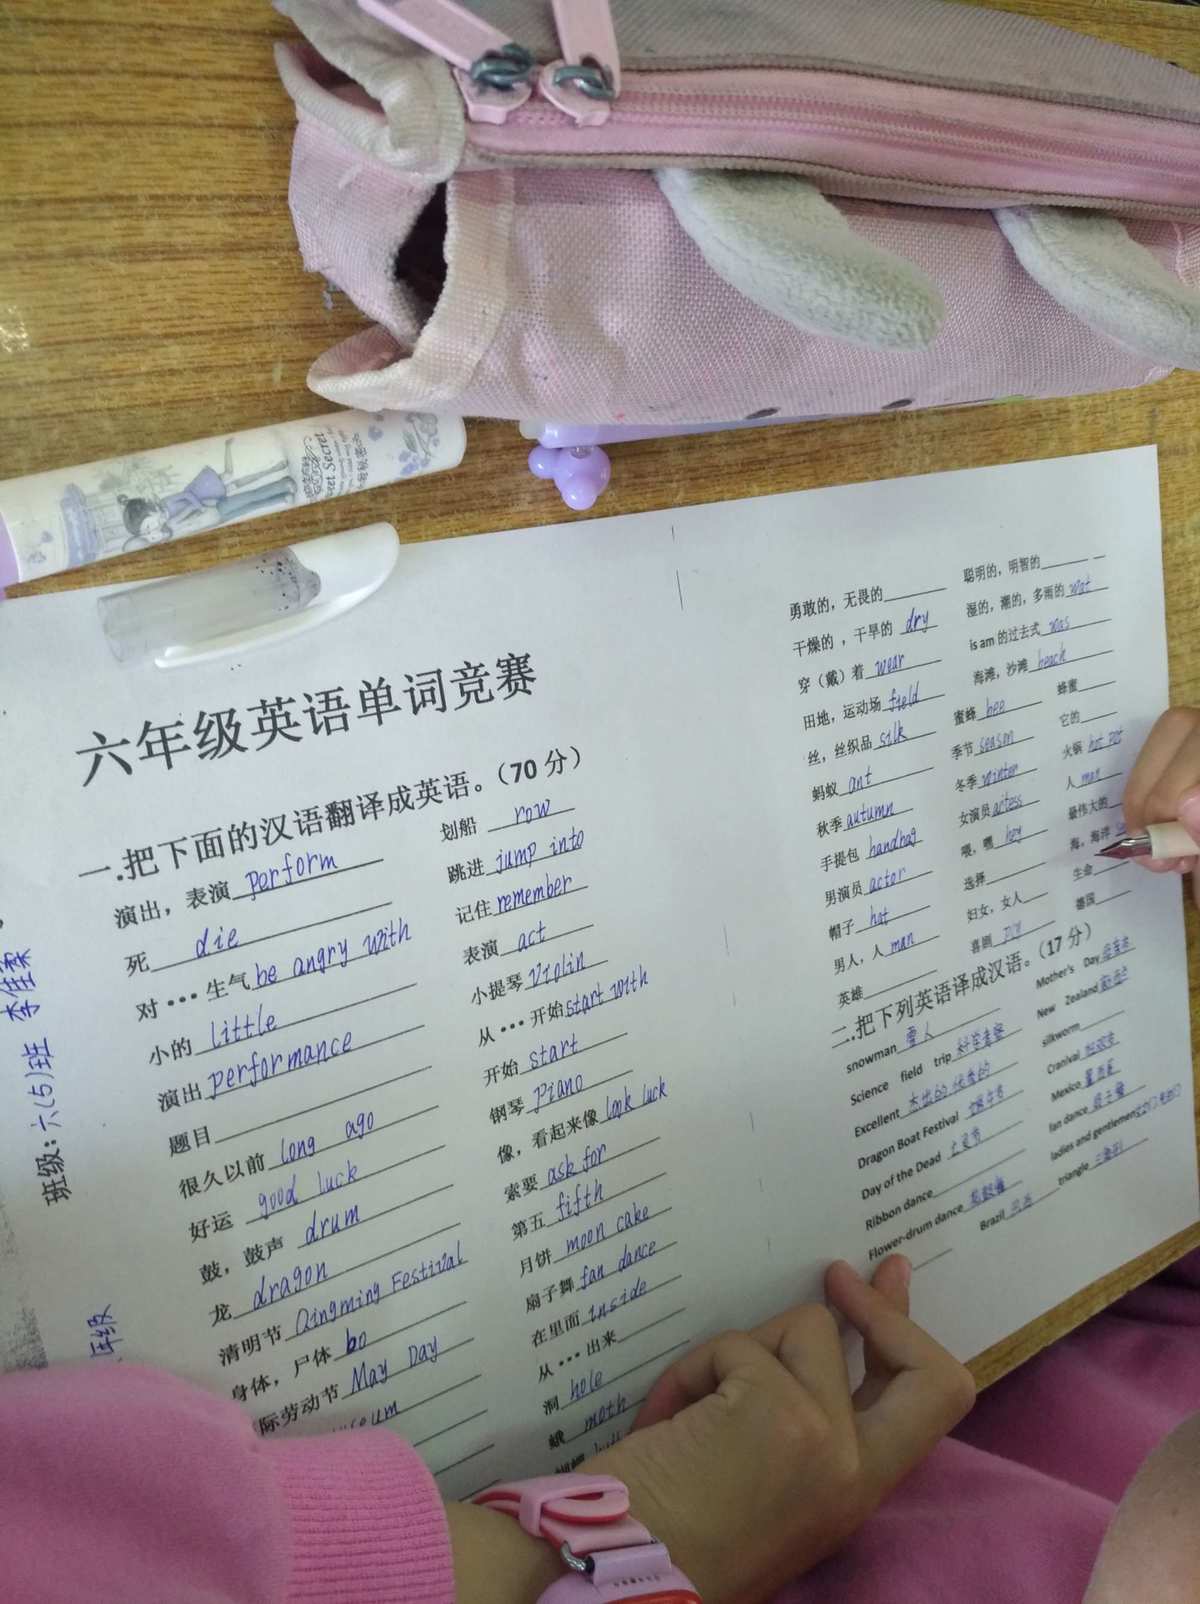 六年级英语单词竞赛
一.把下面的汉语翻译成英语。（70 分）
演出，表演 perform
死 die
对•••生气 be angry with
小的 little
演出 performance
题目
很久以前 long ago
好运 good luck
鼓，鼓声 drum
龙 dragon
清明节 Qingming Festival
身体，尸体 bo
际劳动节 May Day
划船 row
跳进 jump into
记住 remember
表演 act
小提琴 violin
从•••开始 start with
开始 start
钢琴 piano
像，看起来像 look luck
索要 ask for
第五 fifth
月饼 moon cake
扇子舞 fan dance
在里面 inside
从•••出来
洞 hole
蛾 moth
勇敢的，无畏的 聪明的，明智的
干燥的 ，干旱的 dry 湿的，潮的，多雨的 wat
穿（戴）着 wear is am 的过去式 was
田地，运动场 field 海滩，沙滩 beach
丝，丝织品 silk 蜜蜂 bee 蜂蜜
蚂蚁 ant 季节 season 它的
秋季 autumn 冬季 winter 火锅 hot pot
手提包 handbag 女演员 actess 人 man
男演员 actor 喂，嘿 hey 最伟大的
帽子 hat 选择 海，海洋
男人，人 man 妇女，女人 生命
英雄 喜剧 德国
二.把下列英语译成汉语。（17 分）
snowman 雪人 Mother's Day
Science field trip New Zealand
Excellent 杰出的 优秀的 silkworm
Dragon Boat Festival 端午节 Cranival
Day of the Dead 亡灵节 Mexico 墨西哥
Ribbon dance fan dance 扇子舞
Flower-drum dance 花鼓舞 ladies and gentlemen
Brazil triangle
班级：六(5)班